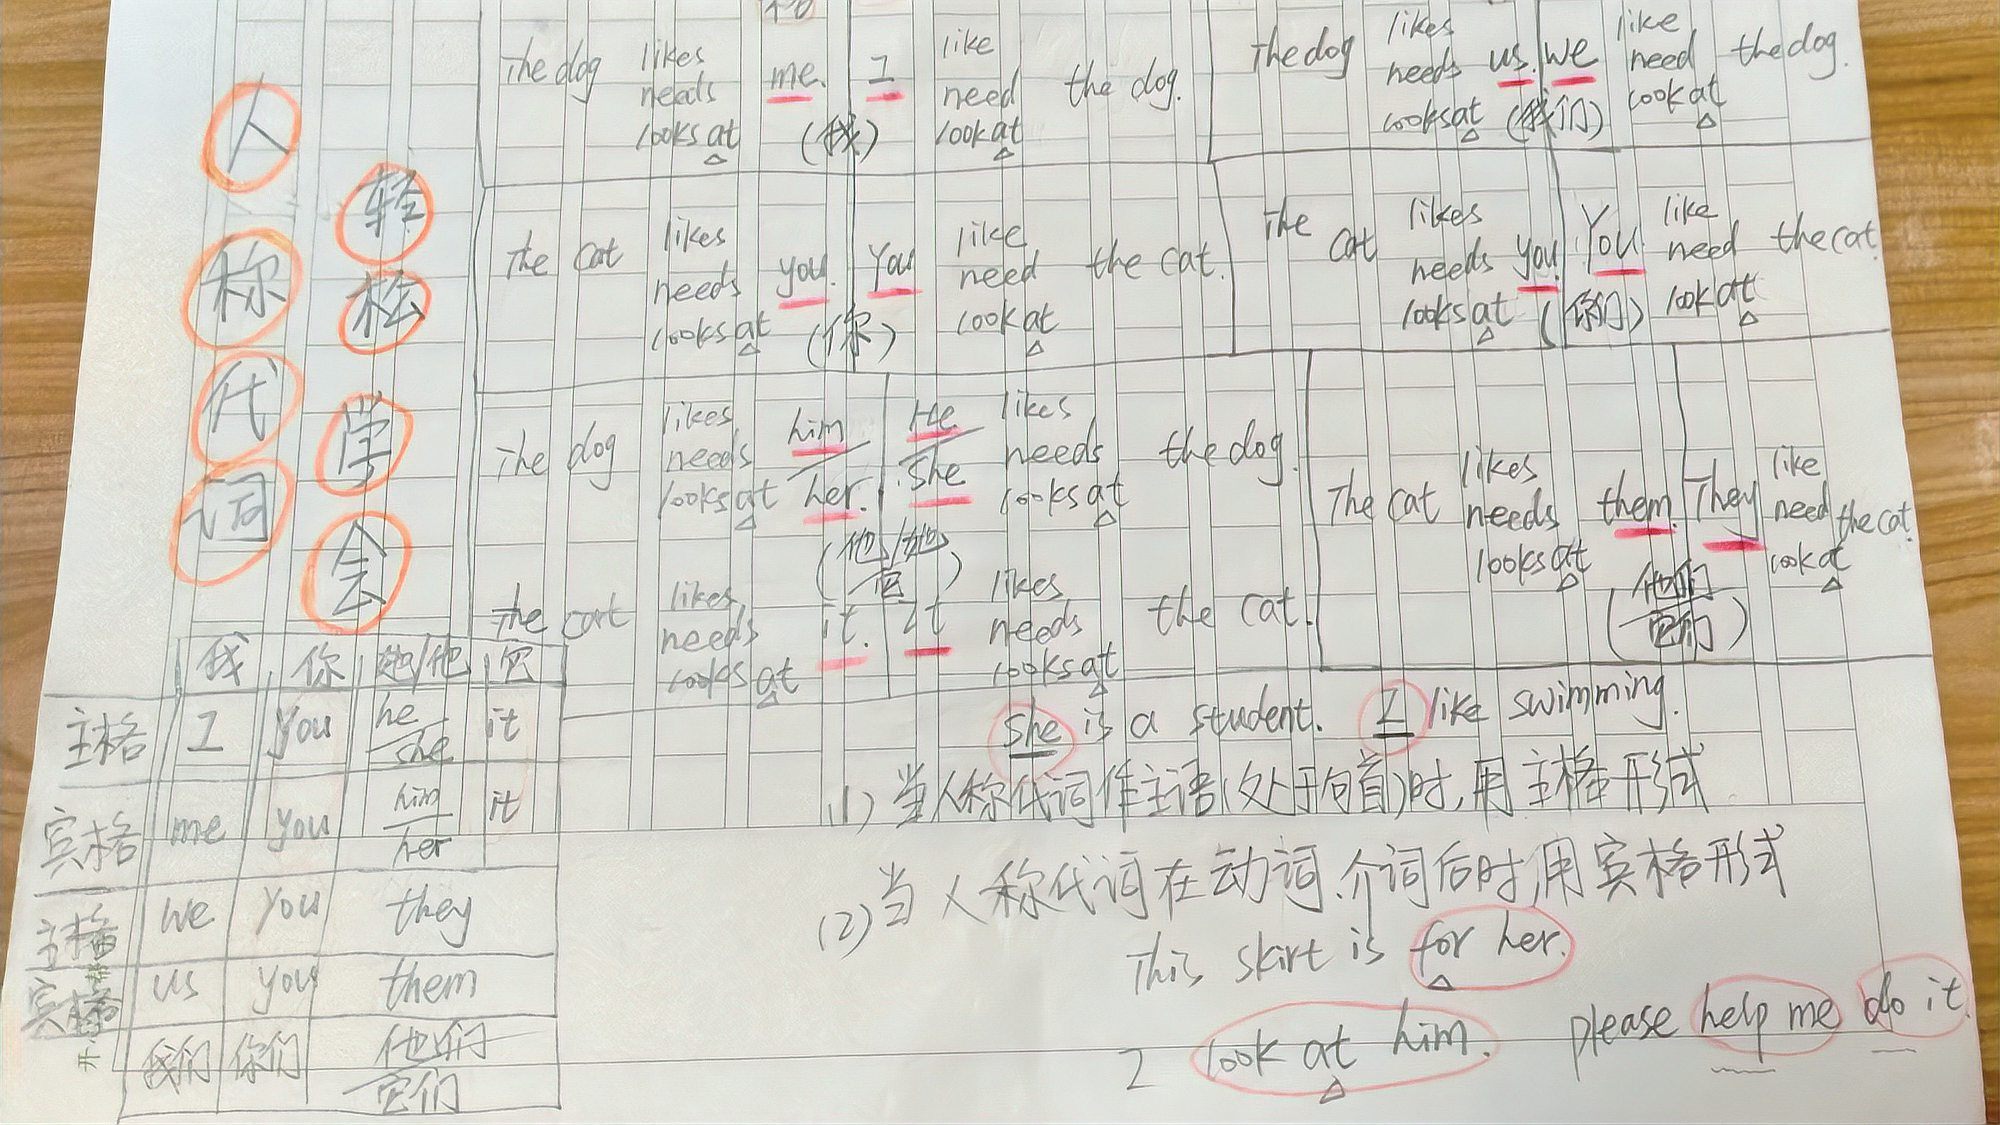 人称代词
轻松学会
The dog likes needs looks at me. I like need look at the dog.
(我)
The dog likes needs looks at us. we like need look at the dog.
(我们)
The cat likes needs looks at you. You like need look at the cat.
(你)
The cat likes needs looks at you. You like need look at the cat.
(你们)
The dog likes needs looks at him/her. He/she likes needs looks at the dog.
(他/她/它)
The cat likes needs looks at it. It likes needs looks at the cat.
The cat likes needs looks at them. They like need look at the cat.
(他们/它们)
我 你 她/他 它
主格 I you he/she it
宾格 me you him/her it
主格 we you they
宾格 us you them
我们 你们 他们/它们
she is a student. I like swimming.
(1) 当人称代词作主语(处于句首)时,用主格形式
(2) 当人称代词在动词、介词后时,用宾格形式
This skirt is for her.
I look at him. please help me do it.